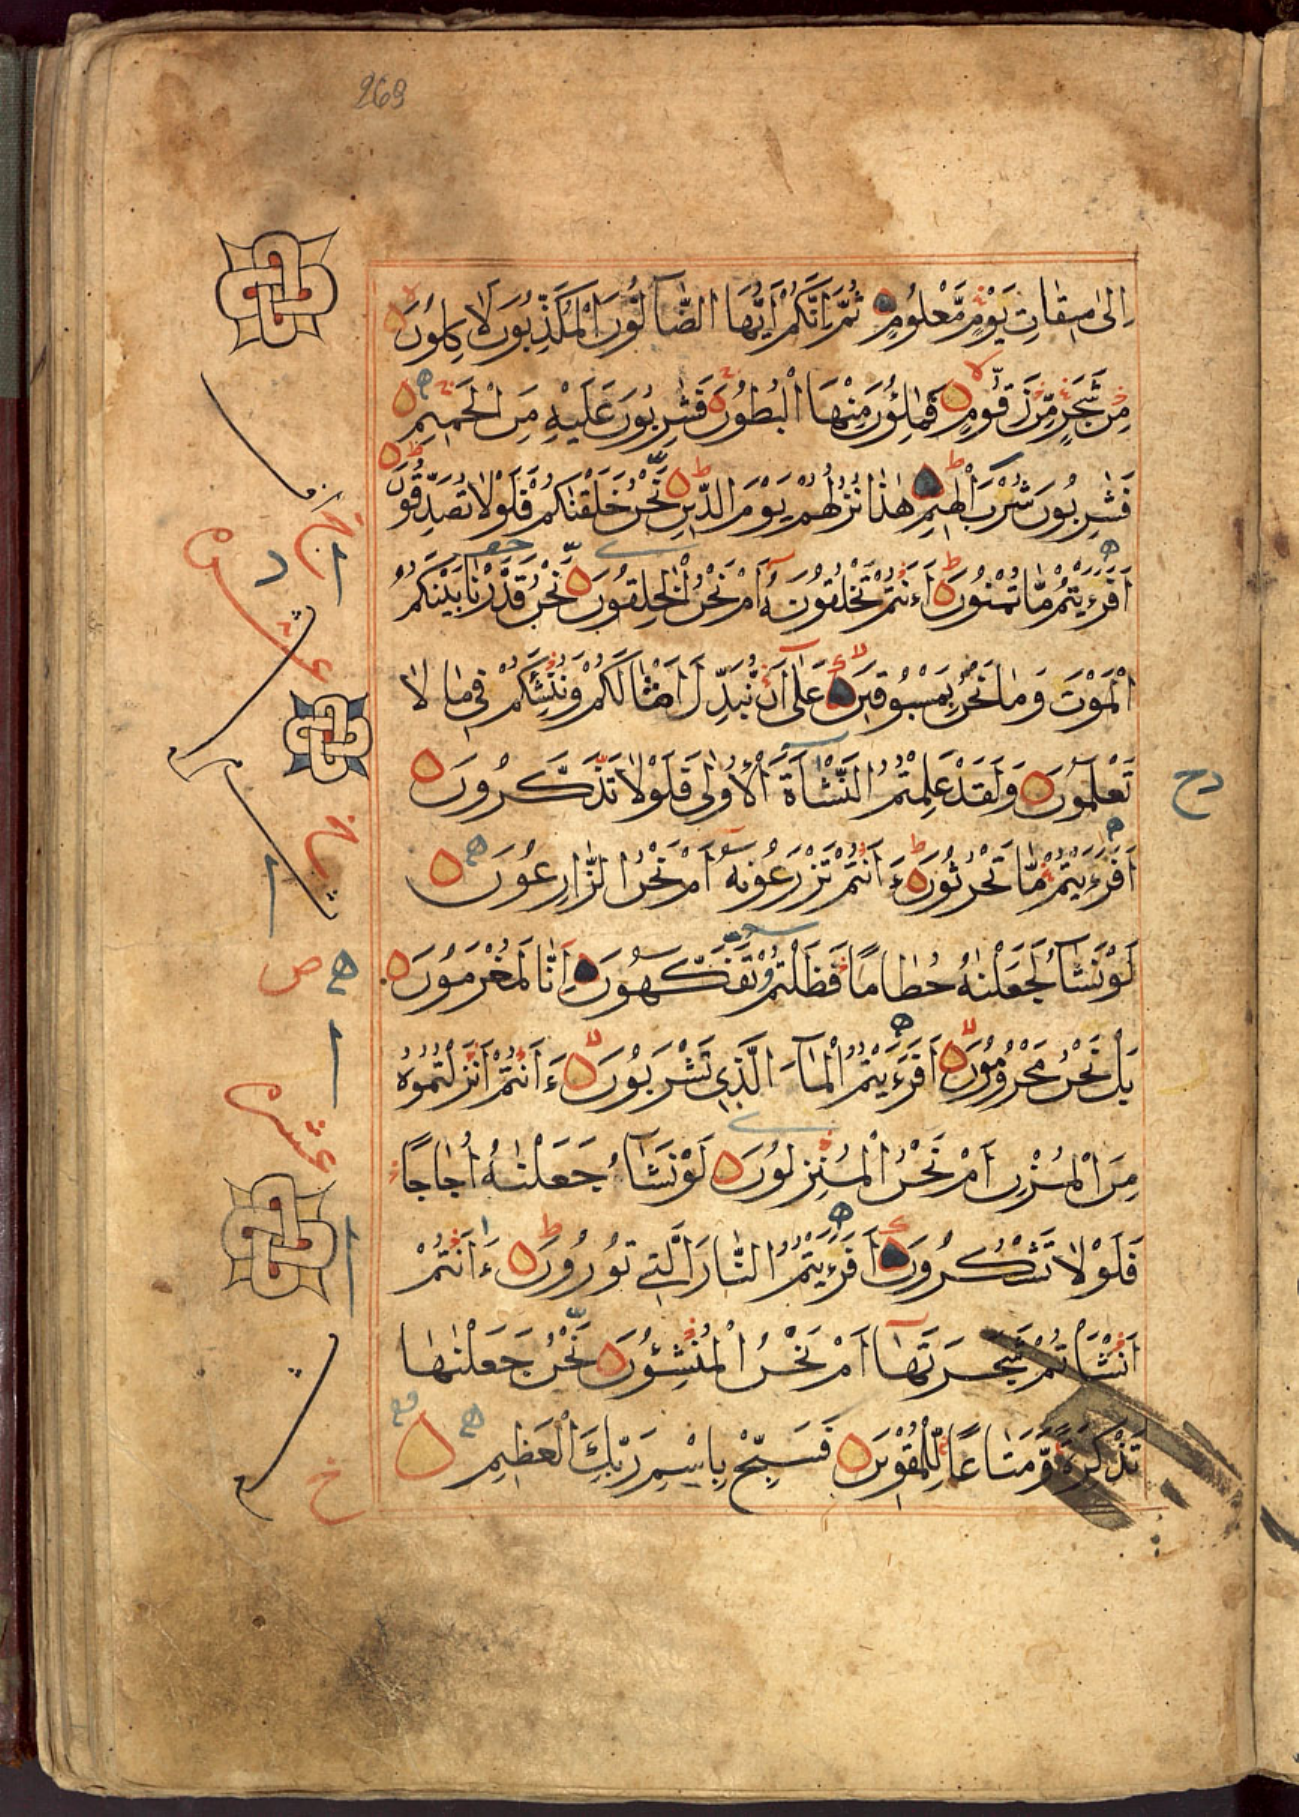 269
اِلىٰ ميقٰاتِ يَوْمٍ مَّعْلُومٍ ثُمَّ اِنَّكُمْ اَيُّهَا الضَّآلُّونَ الْمُكَذِّبُونَ لَاٰكِلُونَ
مِنْ شَجَرٍ مِّنْ زَقُّومٍ فَمَالِؤُنَ مِنْهَا الْبُطُونَ فَشٰرِبُونَ عَلَيْهِ مِنَ الْحَمِيمِ
فَشٰرِبُونَ شُرْبَ الْهِيمِ هٰذَا نُزُلُهُمْ يَوْمَ الدِّينِ نَحْنُ خَلَقْنٰكُمْ فَلَوْلَا تُصَدِّقُونَ
اَفَرَءَيْتُمْ مَّا تُمْنُونَ ءَاَنْتُمْ تَخْلُقُونَهُ اَمْ نَحْنُ الْخٰلِقُونَ نَحْنُ قَدَّرْنَا بَيْنَكُمُ
الْمَوْتَ وَمَا نَحْنُ بِمَسْبُوقِينَ عَلىٰ اَنْ نُّبَدِّلَ اَمْثَالَكُمْ وَنُنْشِئَكُمْ فِي مَا لَا
تَعْلَمُونَ وَلَقَدْ عَلِمْتُمُ النَّشْاَةَ الْاُولىٰ فَلَوْلَا تَذَكَّرُونَ
دح
اَفَرَءَيْتُمْ مَّا تَحْرُثُونَ ءَاَنْتُمْ تَزْرَعُونَهُ اَمْ نَحْنُ الزَّارِعُونَ
لَوْ نَشَآءُ لَجَعَلْنٰهُ حُطَامًا فَظَلْتُمْ تَفَكَّهُونَ اِنَّا لَمُغْرَمُونَ
بَلْ نَحْنُ مَحْرُومُونَ اَفَرَءَيْتُمُ الْمَآءَ الَّذِي تَشْرَبُونَ ءَاَنْتُمْ اَنْزَلْتُمُوهُ
مِنَ الْمُزْنِ اَمْ نَحْنُ الْمُنْزِلُونَ لَوْ نَشَآءُ جَعَلْنٰهُ اُجَاجًا
فَلَوْلَا تَشْكُرُونَ اَفَرَءَيْتُمُ النَّارَ الَّتِي تُورُونَ ءَاَنْتُمْ
اَنْشَاْتُمْ شَجَرَتَهَا اَمْ نَحْنُ الْمُنْشِؤُنَ نَحْنُ جَعَلْنٰهَا
تَذْكِرَةً وَّمَتَاعًا لِّلْمُقْوِينَ فَسَبِّحْ بِاسْمِ رَبِّكَ الْعَظِيمِ